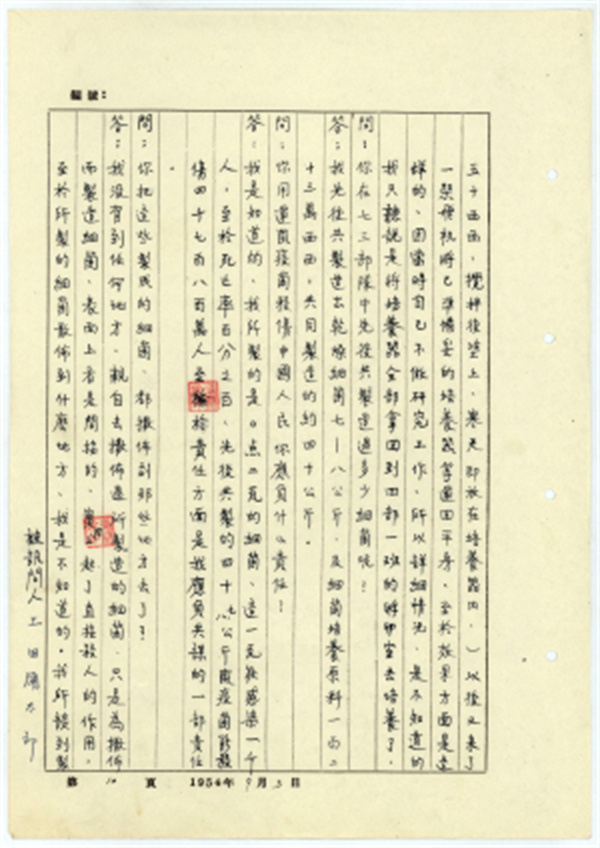 编号：
五十西西，攪拌後塗上，寒天即放在培養器內，）以後又来了
一架飛机將已準備妥的培養器拿運回平房，至於效果方面是這
樣的，因當時自己不做研究工作，所以詳細情況，是不知道的
我只聽說是將培養器全部拿回到四部一班的孵卵室去培養了。
問：你在七三一部隊中先後共製造過多少細菌呢？
答：我先後共製造出乾燥細菌七—八公斤，及細菌培養原料一百二
十三萬西西，共同製造的約四十公斤。
問：你用這菌疫菌殺傷中國人民你應負什么責任！
答：我是知道的，我所製的是0点一瓦的細菌，這一瓦能感染一千
人，至於死亡率百分之百，先後共製的四十七、八公斤鼠疫菌能殺
傷四千七百八百萬人至於責任方面是我應負共謀的一部責任
。
問：你把這些製成的細菌，都撒佈到那些地方去了？
答：我没有到任何地方，親自去撒佈過所製造的細菌，只是為撒佈
而製造細菌，表面上看是間接的，起了直接殺人的作用，
至於所製的細菌散佈到什麼地方，我是不知道的。我所談到製
被訊問人 田 太郎
第 10 頁 1954年9月3日